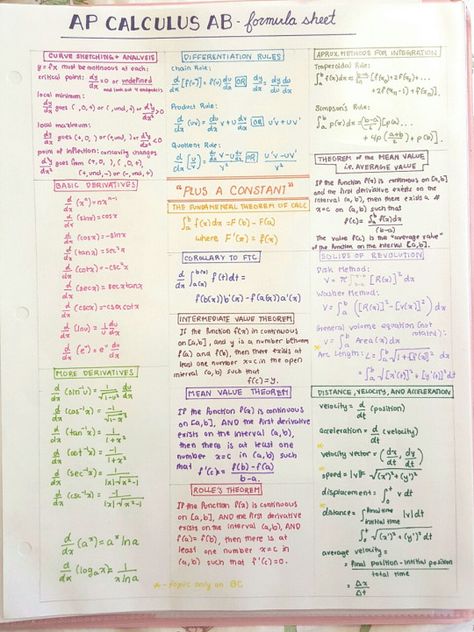 AP CALCULUS AB - formula sheet
CURVE SKETCHING + ANALYSIS
y = f(x) must be continuous at each:
critical point: dy/dx = 0 or undefined
and look out 4 endpoints
local minimum:
dy/dx goes (-,0,+) or (-,und,+) or d²y/dx² >0
local maximum:
dy/dx goes (+,0,-) or (+,und,-) or d²y/dx² <0
point of inflection: concavity changes
d²y/dx² goes from (+,0,-), (-,0,+)
(+,und,-) or (-,und,+)
BASIC DERIVATIVES
d/dx (xⁿ) = nxⁿ⁻¹
d/dx (sinx) = cosx
d/dx (cosx) = -sinx
d/dx (tanx) = sec²x
d/dx (cotx) = -csc²x
d/dx (secx) = secxtanx
d/dx (cscx) = -cscxcotx
d/dx (lnu) = 1/u du/dx
d/dx (eᵘ) = eᵘ du/dx
MORE DERIVATIVES
d/dx (sin⁻¹u) = 1/√1-u² du/dx
d/dx (cos⁻¹x) = -1/√1-x²
d/dx (tan⁻¹x) = 1/1+x²
d/dx (cot⁻¹x) = -1/1+x²
d/dx (sec⁻¹x) = 1/|x|√x²-1
d/dx (csc⁻¹x) = -1/|x|√x²-1
d/dx (aˣ) = aˣ lna
d/dx (logₐx) = 1/xlna
DIFFERENTIATION RULES
Chain Rule:
d/dx [f(u)] = f'(u) du/dx OR dy/dx = dy/du du/dx
Product Rule:
d/dx (uv) = du/dx v + u dv/dx OR u'v + uv'
Quotient Rule:
d/dx (u/v) = du/dx v - u dv/dx / v² OR u'v - uv' / v²
"PLUS A CONSTANT"
THE FUNDAMENTAL THEOREM OF CALC
∫ₐᵇ f(x)dx = F(b) - F(a)
where F'(x) = f(x)
COROLLARY TO FTC
d/dx ∫ₐ₍ₓ₎ᵇ⁽ˣ⁾ f(t)dt =
f(b(x))b'(x) - f(a(x))a'(x)
INTERMEDIATE VALUE THEOREM
If the function f(x) is continuous
on [a,b], and y is a number between
f(a) and f(b), then there exists at
least one number x=c in the open
interval (a,b) such that
f(c)=y.
MEAN VALUE THEOREM
If the function f(x) is continuous
on [a,b], AND the first derivative
exists on the interval (a,b),
then there is at least one
number x=c in (a,b) such
that f'(c) = f(b)-f(a) / b-a.
ROLLE'S THEOREM
If the function f(x) is continuous
on [a,b], AND the first derivative
exists on the interval (a,b), AND
f(a)=f(b), then there is at
least one number x=c in
(a,b) such that f'(c)=0.
- topic only on BC
APROX. METHODS FOR INTEGRATION
Trapezoidal Rule:
Simpson's Rule:
THEOREM of the MEAN VALUE
i.e. AVERAGE VALUE
If the function f(x) is continuous on [a,b]
and the first derivative exists on the
interval (a,b), then there exists a #
x=c on (a,b) such that
f(c) = ∫ₐᵇ f(x)dx / (b-a)
The value f(c) is the "average value"
of the function on the interval [a,b].
SOLIDS OF REVOLUTION
Disk Method:
V = π∫ [R(x)]² dx
Washer Method:
V = π∫ₐᵇ ([R(x)]² - [r(x)]²) dx
General volume equation (not
rotated):
V = ∫ₐᵇ Area(x) dx
Arc Length: L = ∫ₐᵇ √1+[f'(x)]² dx
= ∫ₐᵇ √[x'(t)]² + [y'(t)]² dt
DISTANCE, VELOCITY, AND ACCELERATION
velocity = d/dt (position)
acceleration = d/dt (velocity)
velocity vector = ⟨dx/dt, dy/dt⟩
speed = |v| = √(x')² + (y')²
displacement = ∫ v dt
distance = ∫ final time initial time |v| dt
∫ √(x')² + (y')² dt
average velocity =
= final position - initial position / total time
= Δx/Δt